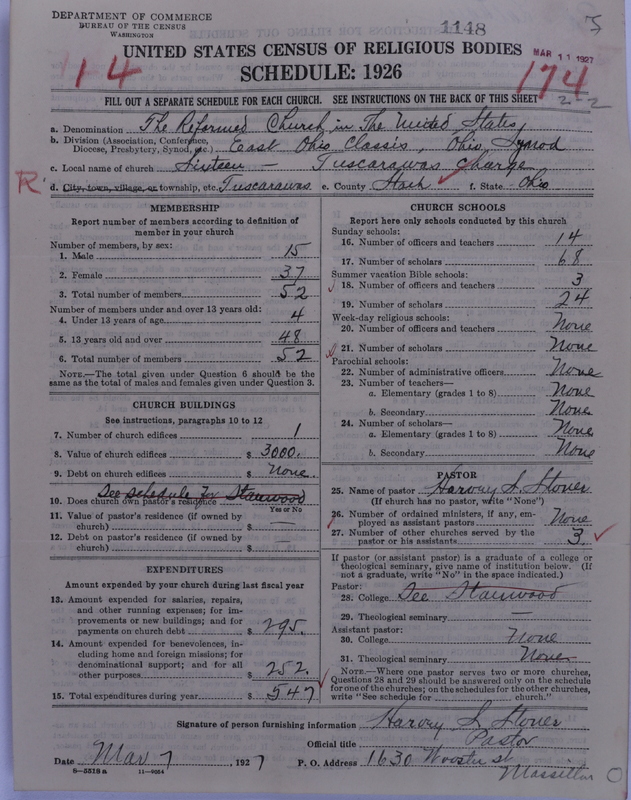 DEPARTMENT OF COMMERCE
BUREAU OF THE CENSUS
WASHINGTON
1148
UNITED STATES CENSUS OF RELIGIOUS BODIES
MAR 11 1927
SCHEDULE: 1926
114
174
22
FILL OUT A SEPARATE SCHEDULE FOR EACH CHURCH. SEE INSTRUCTIONS ON THE BACK OF THIS SHEET
a. Denomination The Reformed Church in The United States
b. Division (Association, Conference, Diocese, Presbytery, Synod, etc.) East Ohio Classis, Ohio Synod
c. Local name of church Sixteen - Tuscarawas Charge
R d. City, town, village, or township, etc. Tuscarawas e. County Stark f. State Ohio
MEMBERSHIP
Report number of members according to definition of
member in your church
Number of members, by sex:
1. Male 15
2. Female 37
3. Total number of members 52
Number of members under and over 13 years old:
4. Under 13 years of age 4
5. 13 years old and over 48
6. Total number of members 52
NOTE.—The total given under Question 6 should be
same as the total of males and females given under Question 3.
CHURCH BUILDINGS
See instructions, paragraphs 10 to 12
7. Number of church edifices 1
8. Value of church edifices $ 3000.
9. Debt on church edifices $ None.
See schedule for Stanwood
10. Does church own pastor's residence
Yes or No
11. Value of pastor's residence (if owned by
church) $ —
12. Debt on pastor's residence (if owned by
church) $ —
EXPENDITURES
Amount expended by your church during last fiscal year
13. Amount expended for salaries, repairs,
and other running expenses; for im-
provements or new buildings; and for
payments on church debt $ 295.
14. Amount expended for benevolences, in-
cluding home and foreign missions; for
denominational support; and for all
other purposes $ 252.
15. Total expenditures during year $ 547
CHURCH SCHOOLS
Report here only schools conducted by this church
Sunday schools:
16. Number of officers and teachers 14
17. Number of scholars 68
Summer vacation Bible schools:
18. Number of officers and teachers 3
19. Number of scholars 24
Week-day religious schools:
20. Number of officers and teachers None
21. Number of scholars None
Parochial schools:
22. Number of administrative officers None
23. Number of teachers—
a. Elementary (grades 1 to 8) None
b. Secondary None
24. Number of scholars—
a. Elementary (grades 1 to 8) None
b. Secondary None
PASTOR
25. Name of pastor Harvey S. Stover
(If church has no pastor, write "None")
26. Number of ordained ministers, if any, em-
ployed as assistant pastors None
27. Number of other churches served by the
pastor or his assistants 3.
If pastor (or assistant pastor) is a graduate of a college or
theological seminary, give name of institution below. (If
not a graduate, write "No" in the space indicated.)
Pastor:
28. College See Stanwood
29. Theological seminary —
Assistant pastor:
30. College None
31. Theological seminary None
NOTE.—Where one pastor serves two or more churches,
Questions 28 and 29 should be answered only on the schedule
for one of the churches; on the schedules for the other churches,
write "See schedule for ____ church."
Signature of person furnishing information Harvey S. Stover
Official title Pastor
Date Mar 7 1927 P. O. Address 1630 Wooster st
8—5518 a 11—9054 Massillon O